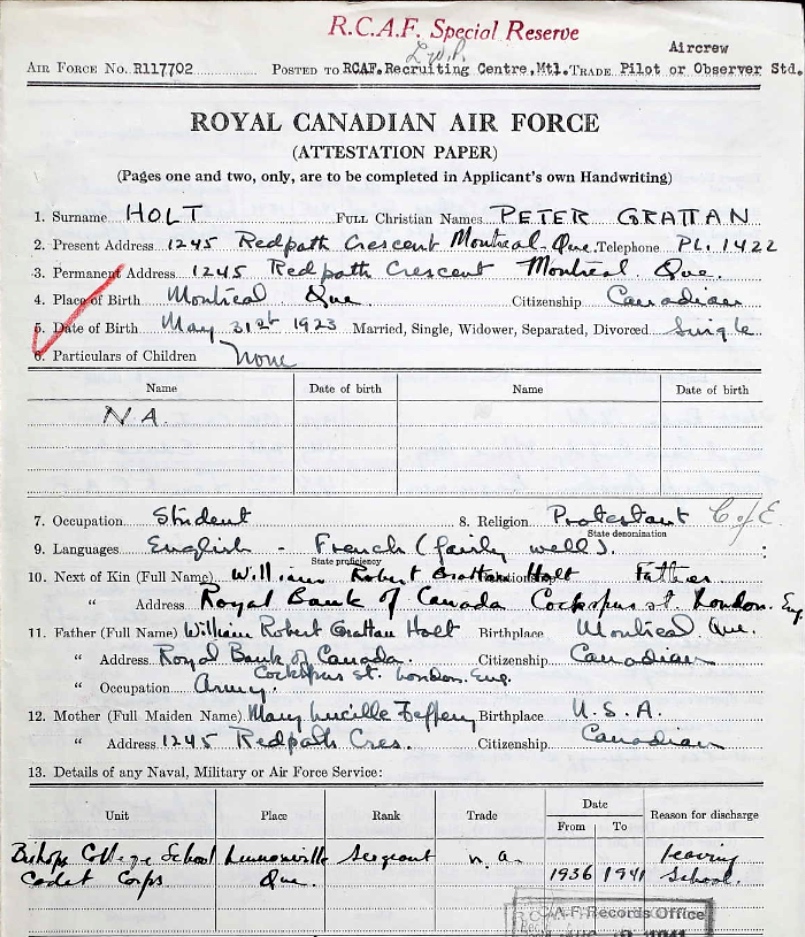 R.C.A.F. Special Reserve
Aircrew
AIR FORCE No. R117702 POSTED TO RCAF. Recruiting Centre, Mtl. TRADE Pilot or Observer Std.
ROYAL CANADIAN AIR FORCE
(ATTESTATION PAPER)
(Pages one and two, only, are to be completed in Applicant's own Handwriting)
1. Surname HOLT FULL Christian Names PETER GRATTAN
2. Present Address 1245 Redpath Crescent Montreal. Que. Telephone PL. 1422
3. Permanent Address 1245 Redpath Crescent Montreal. Que.
4. Place of Birth Montreal Que Citizenship Canadian
5. Date of Birth May 31st 1923 Married, Single, Widower, Separated, Divorced Single
6. Particulars of Children None
Name Date of birth Name Date of birth
N A.
7. Occupation Student 8. Religion Protestant C of E
State denomination
9. Languages English - French (fairly well).
State proficiency
10. Next of Kin (Full Name) William Robert Grattan Holt Relationship Father
" Address Royal Bank of Canada Cockspur St. London. Eng
11. Father (Full Name) William Robert Grattan Holt Birthplace Montreal. Que.
" Address Royal Bank of Canada. Citizenship Canadian
Cockspur St. London. Eng.
" Occupation Army.
12. Mother (Full Maiden Name) Mary Lucille Birthplace U.S.A.
" Address 1245 Redpath Cres. Citizenship Canadian
13. Details of any Naval, Military or Air Force Service:
Unit Place Rank Trade Date Reason for discharge
From To
Bishops College School Lennoxville Sergeant n.a. leaving
Cadet Corps Que. 1936 1941 School.
R.C.A.F. Records Office
1941